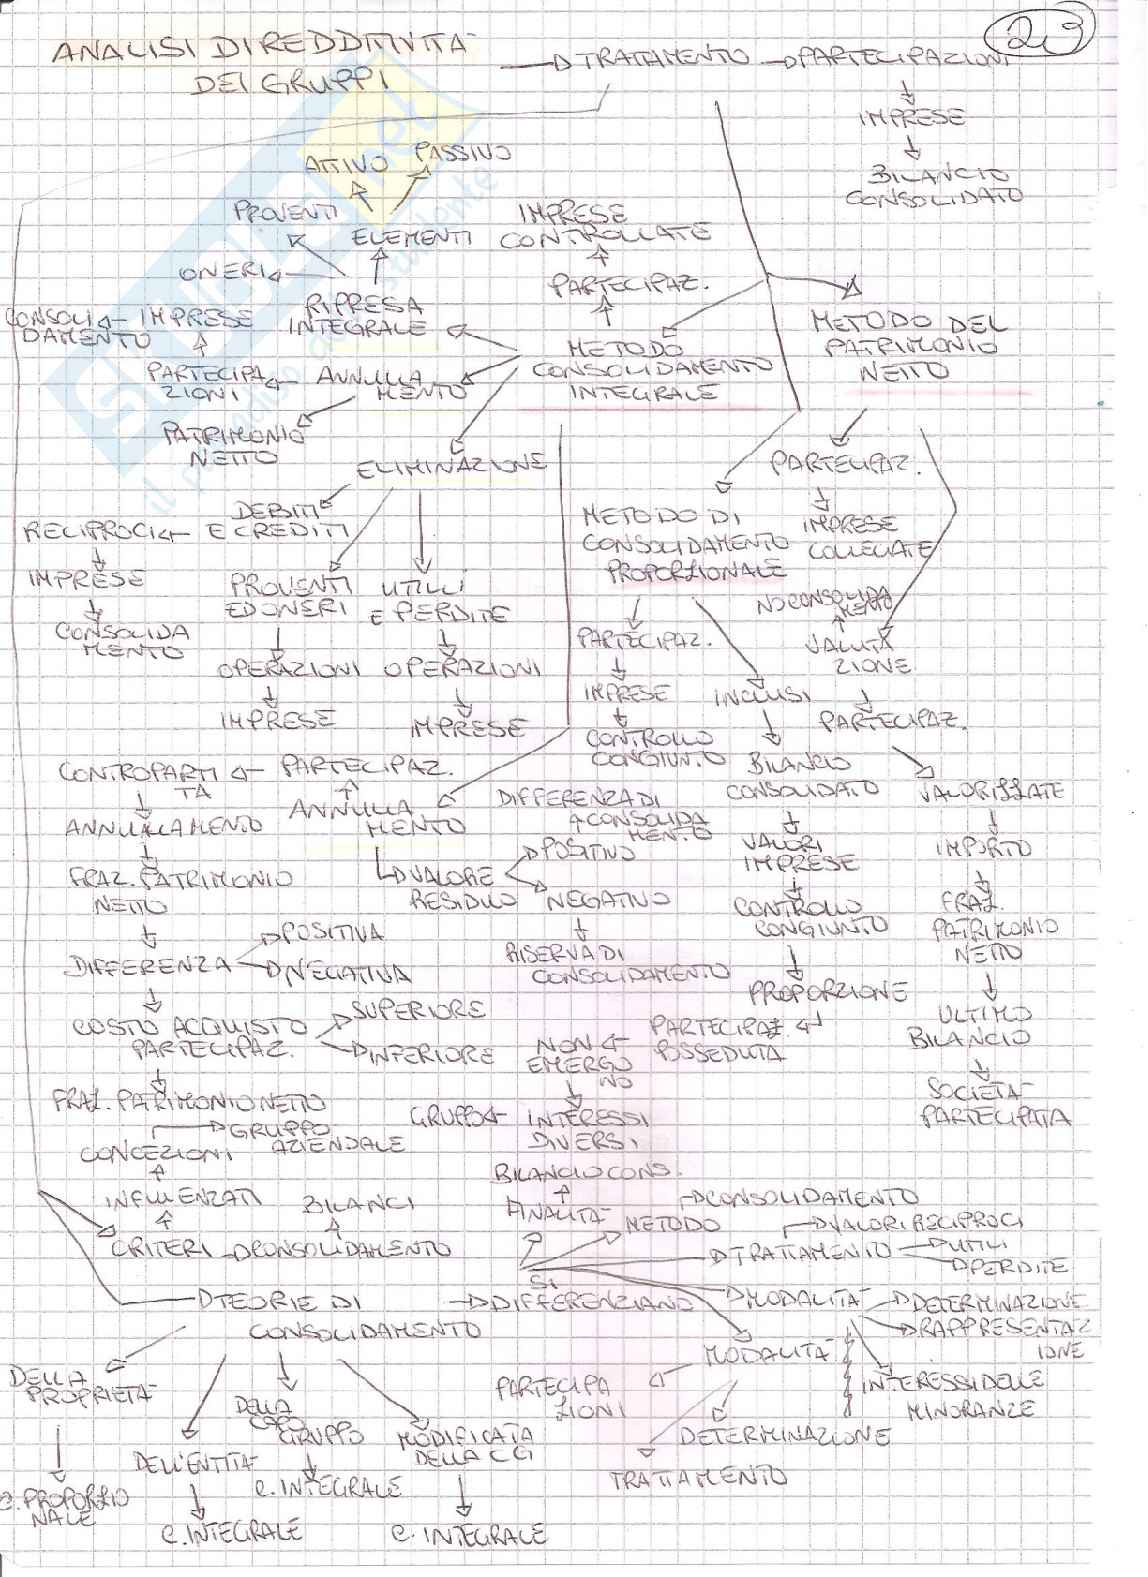 23
ANALISI DI REDDITIVITA'
DEI GRUPPI
TRATTAMENTO
PARTECIPAZIONI
IMPRESE
BILANCIO
CONSOLIDATO
ATTIVO
PASSIVO
PROVENTI
ELEMENTI
IMPRESE
CONTROLLATE
ONERI
PARTECIPAZ.
RIPRESA
INTEGRALE
IMPRESE
CONSOLI
DAMENTO
METODO
CONSOLIDAMENTO
INTEGRALE
METODO DEL
PATRIMONIO
NETTO
PARTECIPA
ZIONI
ANNULLA
MENTO
PATRIMONIO
NETTO
ELIMINAZIONE
PARTECIPAZ.
DEBITI
E CREDITI
RECIPROCI
METODO DI
CONSOLIDAMENTO
PROPORZIONALE
IMPRESE
COLLEGATE
IMPRESE
CONSOLIDA
MENTO
PROVENTI
ED ONERI
UTILI
E PERDITE
NO CONSOLIDA
MENTO
OPERAZIONI
OPERAZIONI
PARTECIPAZ.
VALUTA
ZIONE
IMPRESE
IMPRESE
IMPRESE
INCLUSI
PARTECIPAZ.
CONTROLLO
CONGIUNTO
BILANCIO
CONSOLIDATO
VALORIZZATE
CONTROPARTI
TA
PARTECIPAZ.
ANNULLA
MENTO
DIFFERENZA DI
CONSOLIDA
MENTO
ANNULLAMENTO
POSITIVO
VALORI
IMPRESE
IMPORTO
FRAZ. PATRIMONIO
NETTO
VALORE
RESIDUO
NEGATIVO
CONTROLLO
CONGIUNTO
FRAZ.
PATRIMONIO
NETTO
DIFFERENZA
POSITIVA
NEGATIVA
RISERVA DI
CONSOLIDAMENTO
PROPORZIONE
COSTO ACQUISTO
PARTECIPAZ.
SUPERIORE
INFERIORE
NON
EMERGO
NO
PARTECIPAZ.
POSSEDUTA
ULTIMO
BILANCIO
FRAZ. PATRIMONIO NETTO
GRUPPO
INTERESSI
DIVERSI
SOCIETA'
PARTECIPATA
CONCEZIONI
GRUPPO
AZIENDALE
BILANCIO CONS.
INFLUENZATI
BILANCI
FINALITA'
METODO
CONSOLIDAMENTO
CRITERI
CONSOLIDAMENTO
TRATTAMENTO
VALORI RECIPROCI
UTILI
PERDITE
SI
TEORIE DI
CONSOLIDAMENTO
DIFFERENZIANO
MODALITA'
DETERMINAZIONE
RAPPRESENTAZ
IONE
MODALITA'
DELLA
PROPRIETA'
PARTECIPA
ZIONI
INTERESSI DELLE
MINORANZE
DELLA
CAPO
GRUPPO
MODIFICATA
DELLA CG
DETERMINAZIONE
DELL'ENTITA'
TRATTAMENTO
C. PROPORZIO
NALE
C. INTEGRALE
C. INTEGRALE
C. INTEGRALE